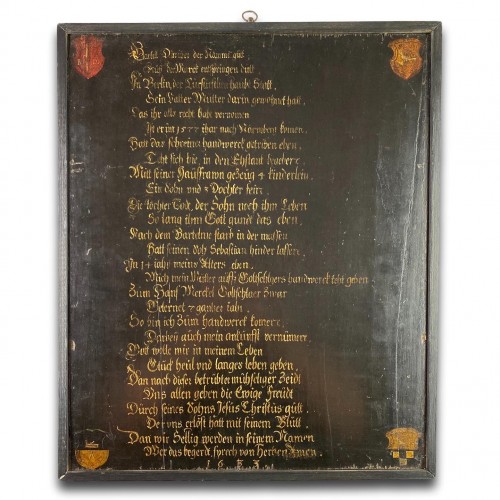 Bartel Darines der Nammt gut
Aus de Marck entspringen dutt
In Berlin, der Curfürstlichaube Statt
Sein Vatter Mutter darin gewohnet hatt
Das ihr alls nicht habt vernomen
In er im 1577 ihar nach Nürmberg komen
Hatt das schreiner handwerck getriben eben
Mitt seiner Hausfrawn gezeug 4 kinderlein
Ein Sohn und 3 Döchter
Die töchter Todt, der Sohn noch ihm Leben
So lang ihm Gott gundt das eben
Nach dem Bartelme starb in der massen
Hatt seinen Soh Sebastian hinder lassen
In 14 iahr meins Alters eben
Mich mein Mutter auffs Goltschlagers handwerck teht geben
Zum Hans Merckel Goltschlager zwar
gantzer iahr
So bin ich Zum handwerck komen
Darbey auch mein ankunfft vernumen
Gott wolle mir in meinem Leben
Glück heill und langes leben geben
Dan nach dieser betrübter mühseliger Zeidt
Uns allen geben die Ewige Freudt
Dürch seines Sohns Jesus Christus gütt
Der uns erlöst hatt mit seinem Blutt
Dan wir Sellig werden in seinem Namen
Wer das begerdt, sprech von Herzen Amen